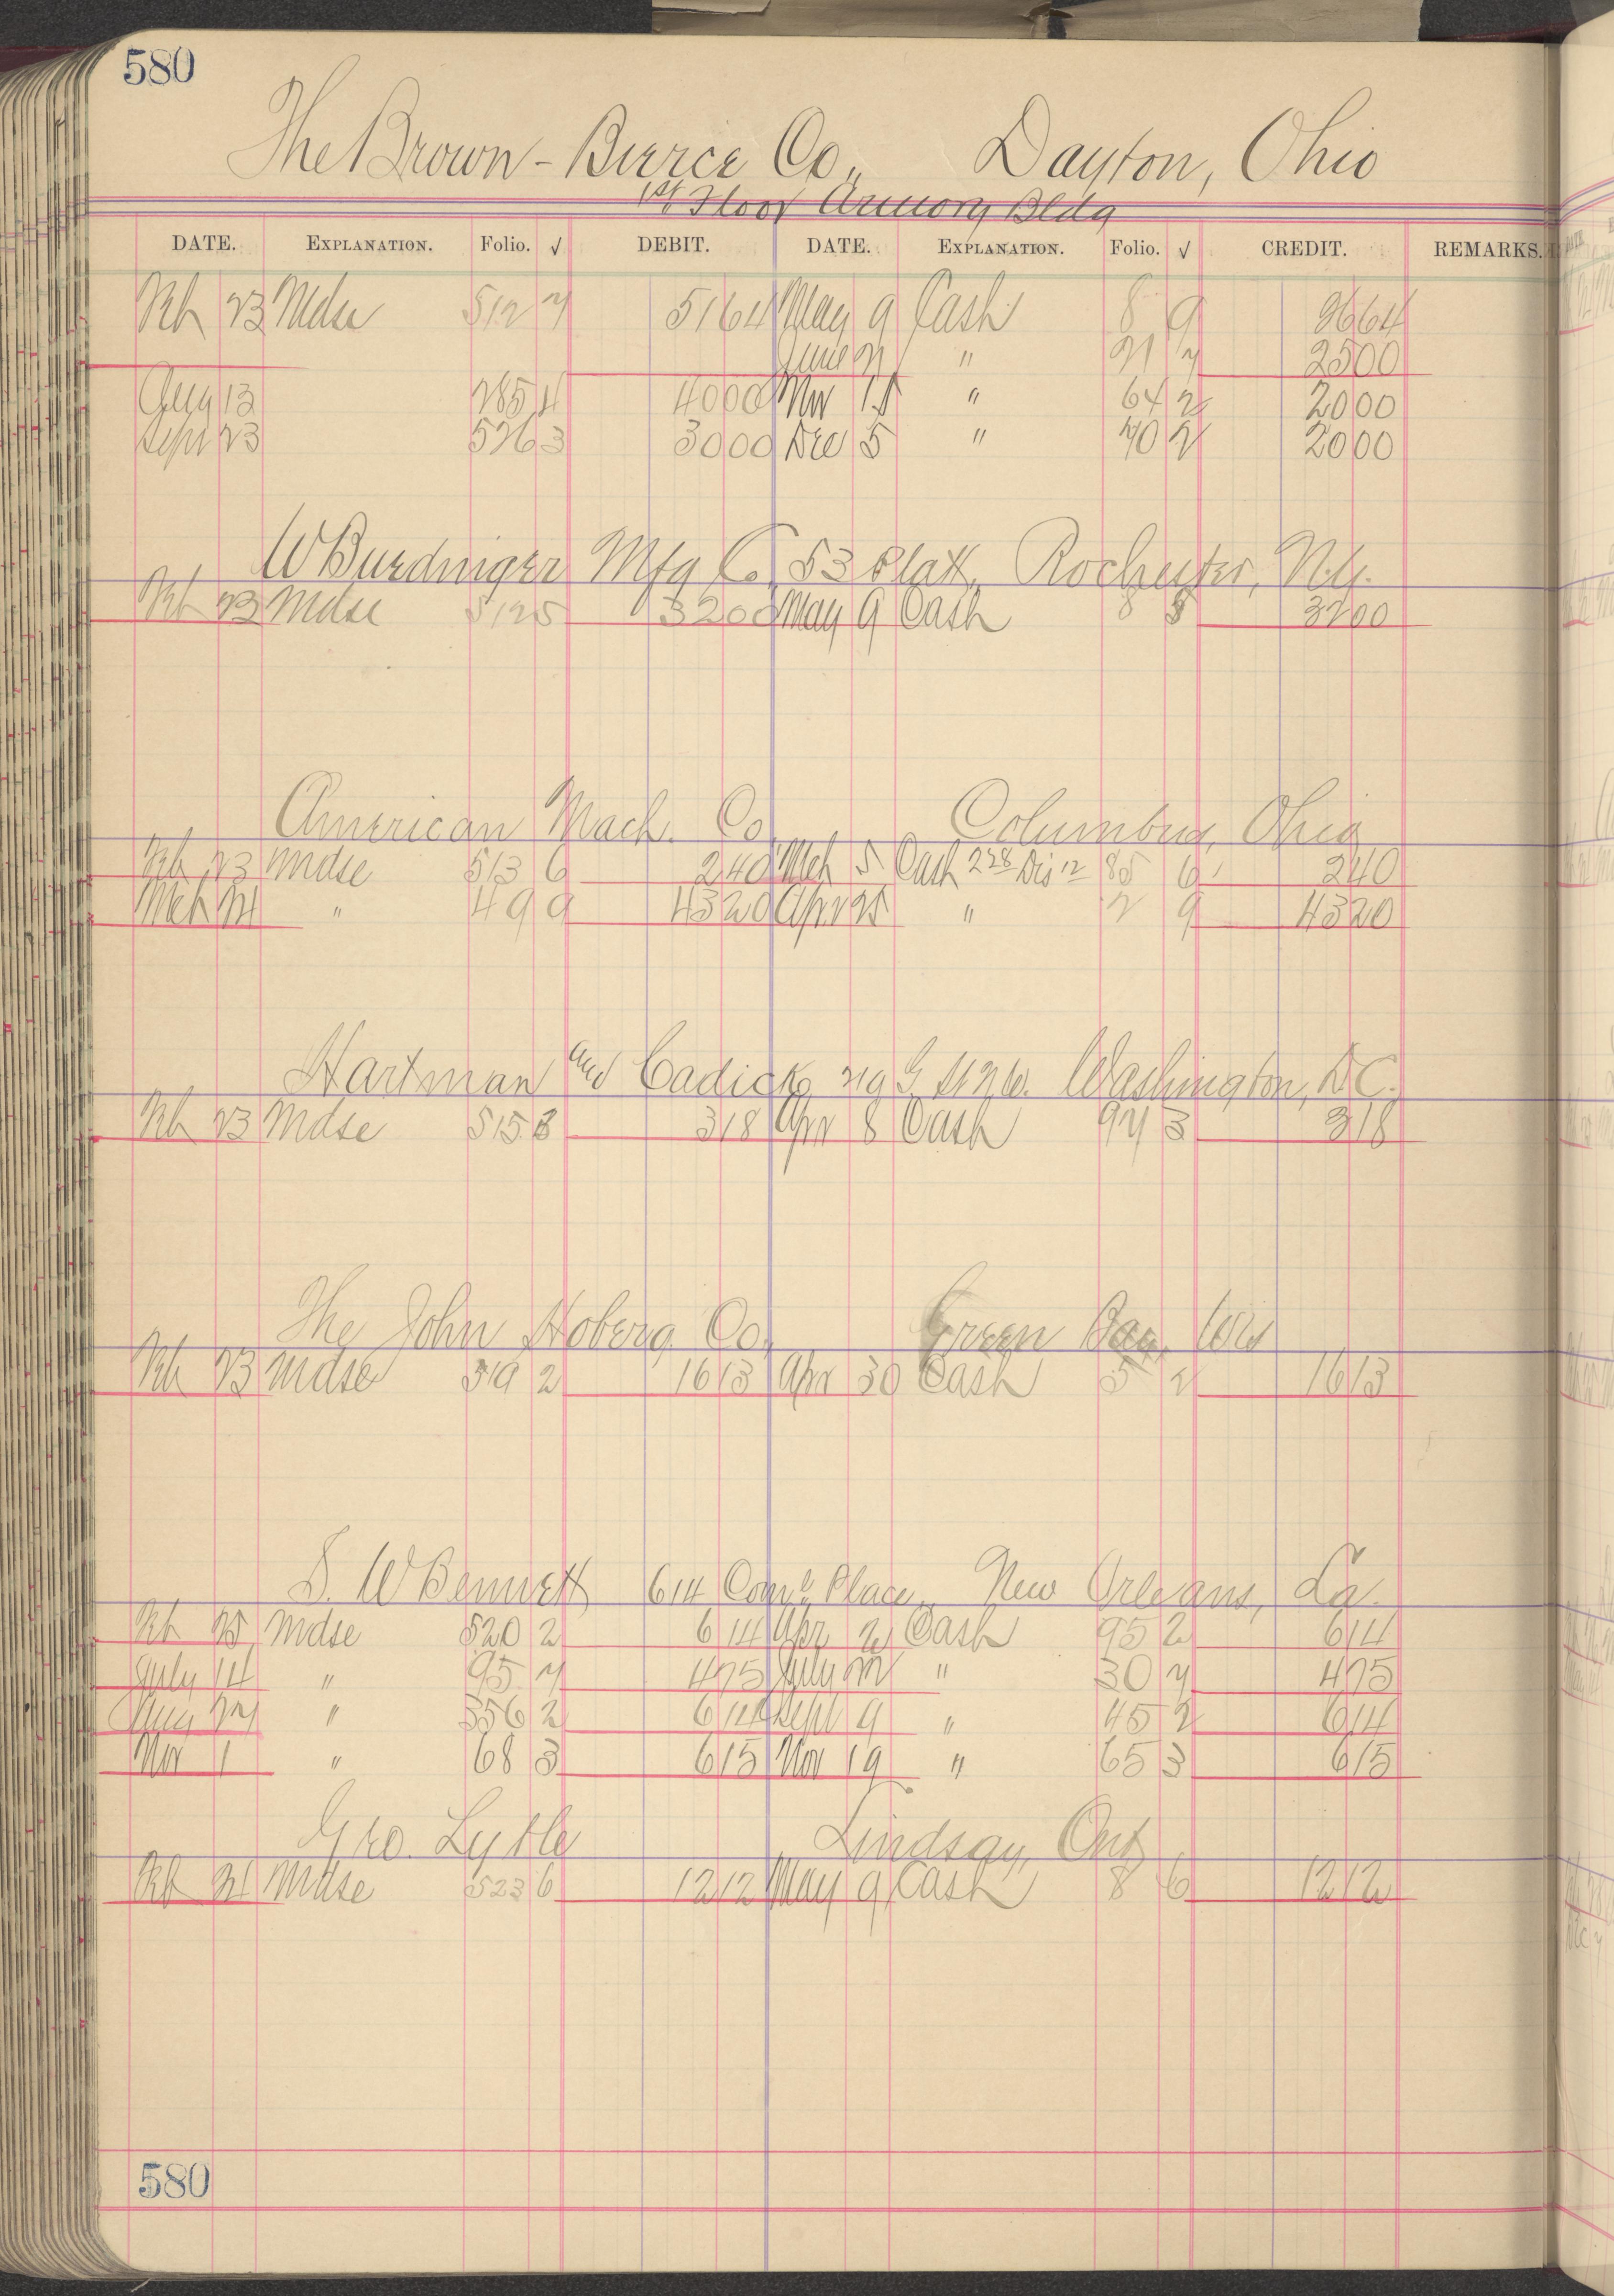 580
The Brown-Bierce Co., Dayton, Ohio
1st Floor Armory Bldg
DATE. EXPLANATION. Folio. √ DEBIT. DATE. EXPLANATION. Folio. √ CREDIT. REMARKS.
Feb 23 Mdse 512 7 5164 May 9 Cash 8 9 2664
June 21 " 21 7 2500
Aug 13 285 4 4000 Nov 18 " 64 2 2000
Sept 23 526 3 3000 Dec 5 " 70 2 2000
Mfg Co. 53 Platt, Rochester, N.Y.
Feb 23 Mdse 512 5 3200 May 9 Cash 8 5 3200
American Mach. Co. Columbus, Ohio
Feb 23 Mdse 513 6 240 Mch 5 Cash 228 Dis 12 85 6 240
Mch 24 " 49 9 4320 Apr 25 " 2 9 4320
Hartman and Cadick, 719 G St N.W. Washington, D.C.
Feb 23 Mdse 515 3 318 Apr 8 Cash 97 3 318
The John Hoberg Co. Green Bay, Wis
Feb 23 Mdse 519 2 1613 Apr 30 Cash 5 2 1613
S. W Bennett 614 Coml Place, New Orleans, La.
Feb 25 Mdse 520 2 614 Apr 2 Cash 95 2 614
July 14 " 95 7 475 July 22 " 30 7 475
Aug 27 " 356 2 614 Sept 9 " 45 2 614
Nov 1 " 68 3 615 Nov 19 " 65 3 615
Geo. Lytle Lindsay, Ont
Feb 24 Mdse 523 6 1212 May 9 Cash 8 6 1212
580